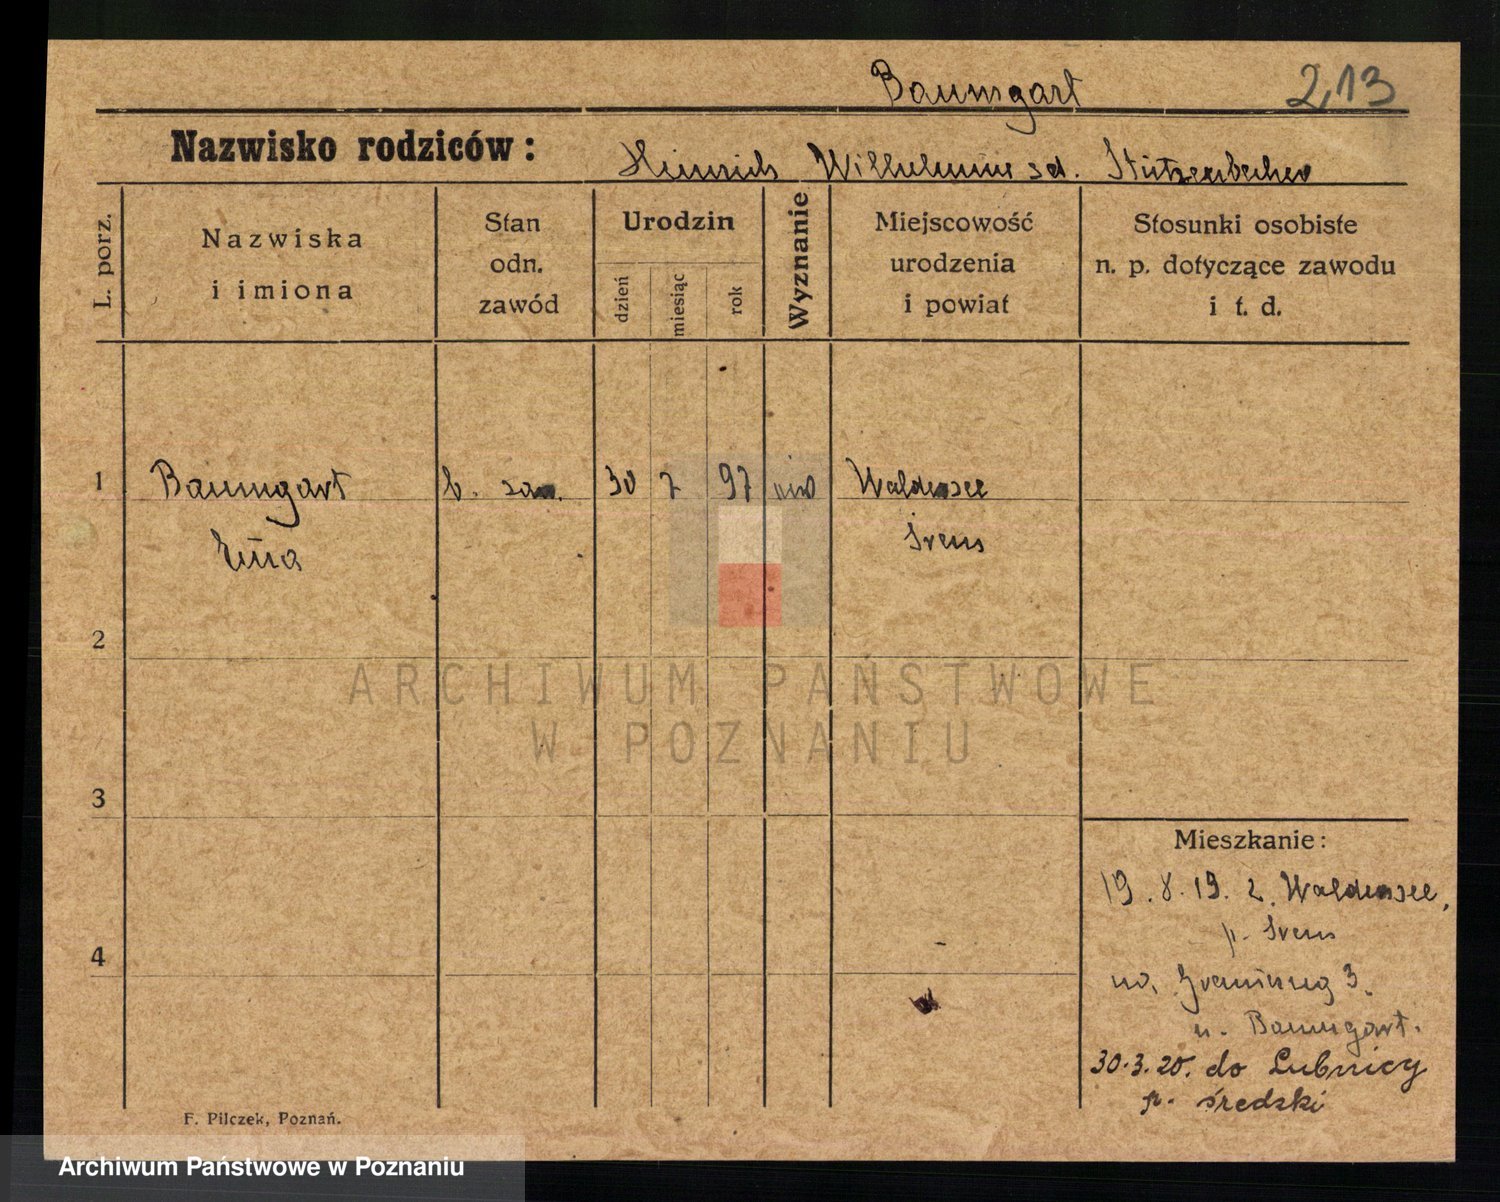 Baumgart 213
Nazwisko rodziców: Heinrich Wilhelmine zd. Stütz
L. porz.
Nazwiska
i imiona
Stan
odn.
zawód
Urodzin
dzień
miesiąc
rok
Wyznanie
Miejscowość
urodzenia
i powiat
Stosunki osobiste
n. p. dotyczące zawodu
i t. d.
1 Baumgart b. zaw. 30 7 97 Waldensee
Erna Srem
2
3
4
ARCHIWUM PAŃSTWOWE
W POZNANIU
Mieszkanie:
19. 8. 19. z Waldensee,
p. Srem
3.
u. Baumgart.
30.3.20. do Lubnicy
p. średzki
F. Pilczek, Poznań.
Archiwum Państwowe w Poznaniu